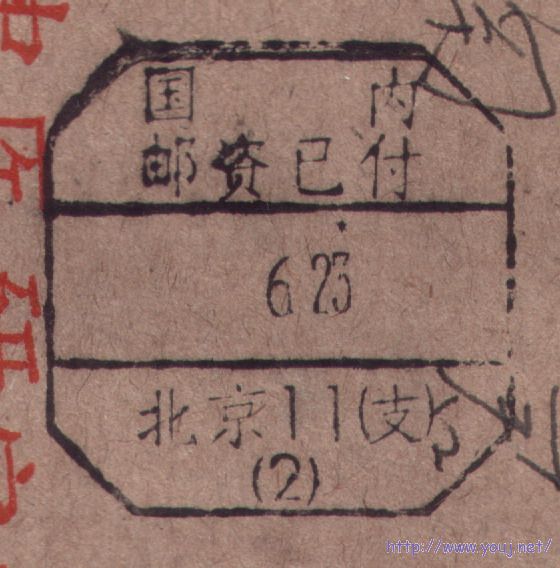 国 内
邮资已付
6 23
北京11(支)
(2)
中医研究
http://www.youj.net/